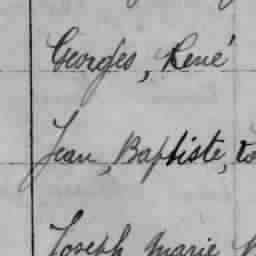 Georges, René
Jean, Baptiste,
Joseph Marie